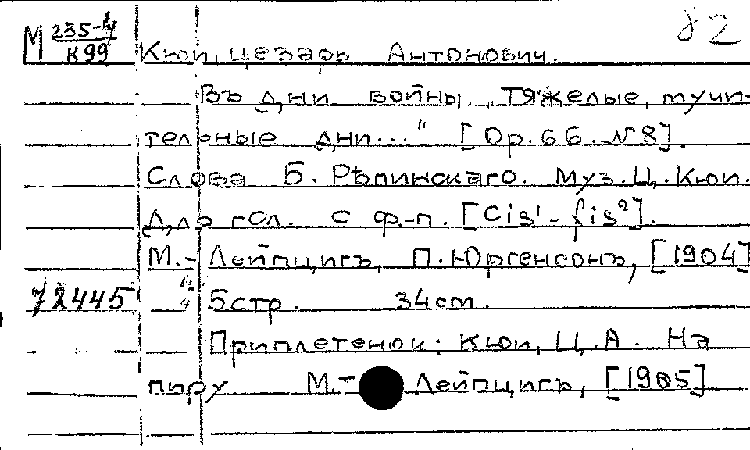 М 235-Ч/К99 82
Кюи, Цезарь Антонович.
Въ дни войны. „Тяжелые, мучи-
тельные дни..." [Op. 66. N 8].
Слова Б. Рѣпинскаго. Муз. Ц. Кюи.
Для гол. с ф.-п. [Cis¹- fis²].
М.- Лейпцигъ, П. Юргенсонъ, [1904]
72445 5 стр. 34 см.
Приплетенои: Кюи, Ц. А. На
пиру М.- Лейпцигъ, [1905]